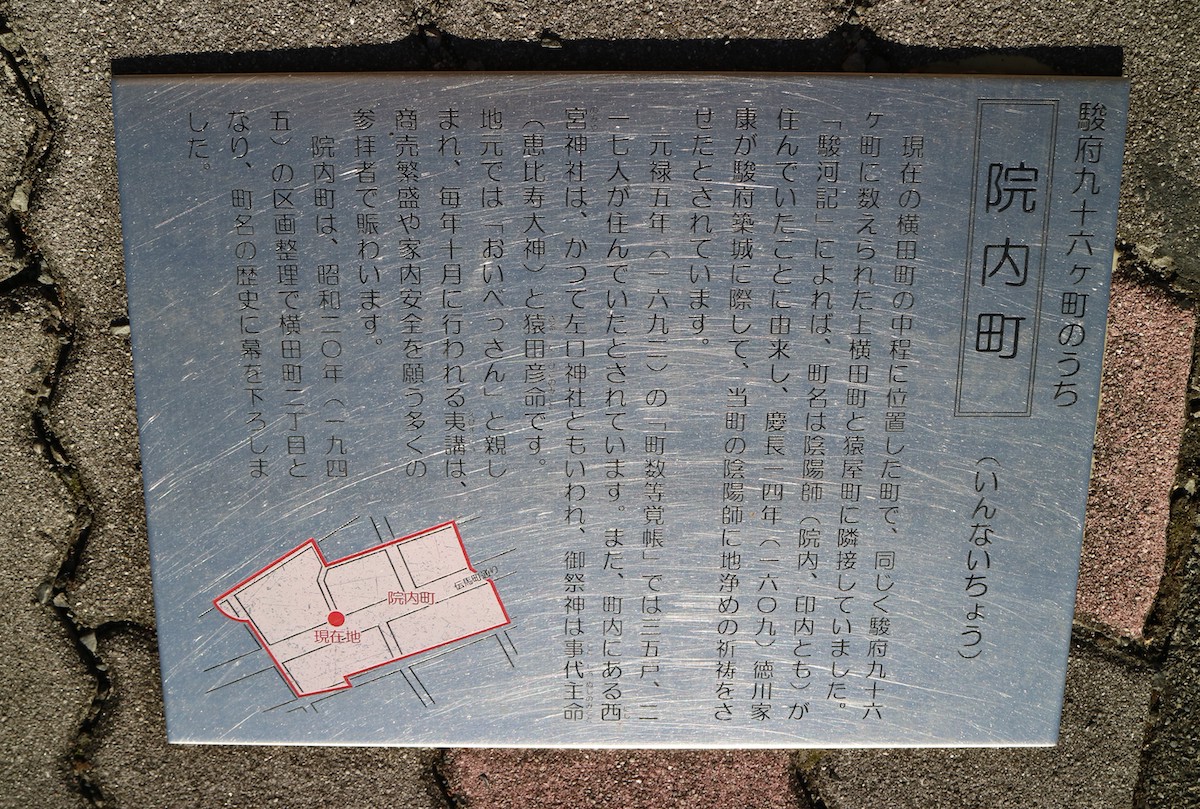 駿府九十六ヶ町のうち
院内町
（いんないちょう）
現在の横田町の中程に位置した町で、同じく駿府九十六
ヶ町に数えられた上横田町と猿屋町に隣接していました。
「駿河記」によれば、町名は陰陽師（院内、印内とも）が
住んでいたことに由来し、慶長一四年（一六〇九）徳川家
康が駿府築城に際して、当町の陰陽師に地浄めの祈祷をさ
せたとされています。
元禄五年（一六九二）の「町数等覚帳」では三五戸、二
一七人が住んでいたとされています。また、町内にある西
宮神社は、かつて左口神社ともいわれ、御祭神は事代主命
（恵比寿大神）と猿田彦命です。
地元では「おいべっさん」と親し
まれ、毎年十月に行われる夷講は、
商売繁盛や家内安全を願う多くの
参拝者で賑わいます。
院内町は、昭和二〇年（一九四
五）の区画整理で横田町二丁目と
なり、町名の歴史に幕を下ろしま
した。
伝馬町通り
院内町
現在地